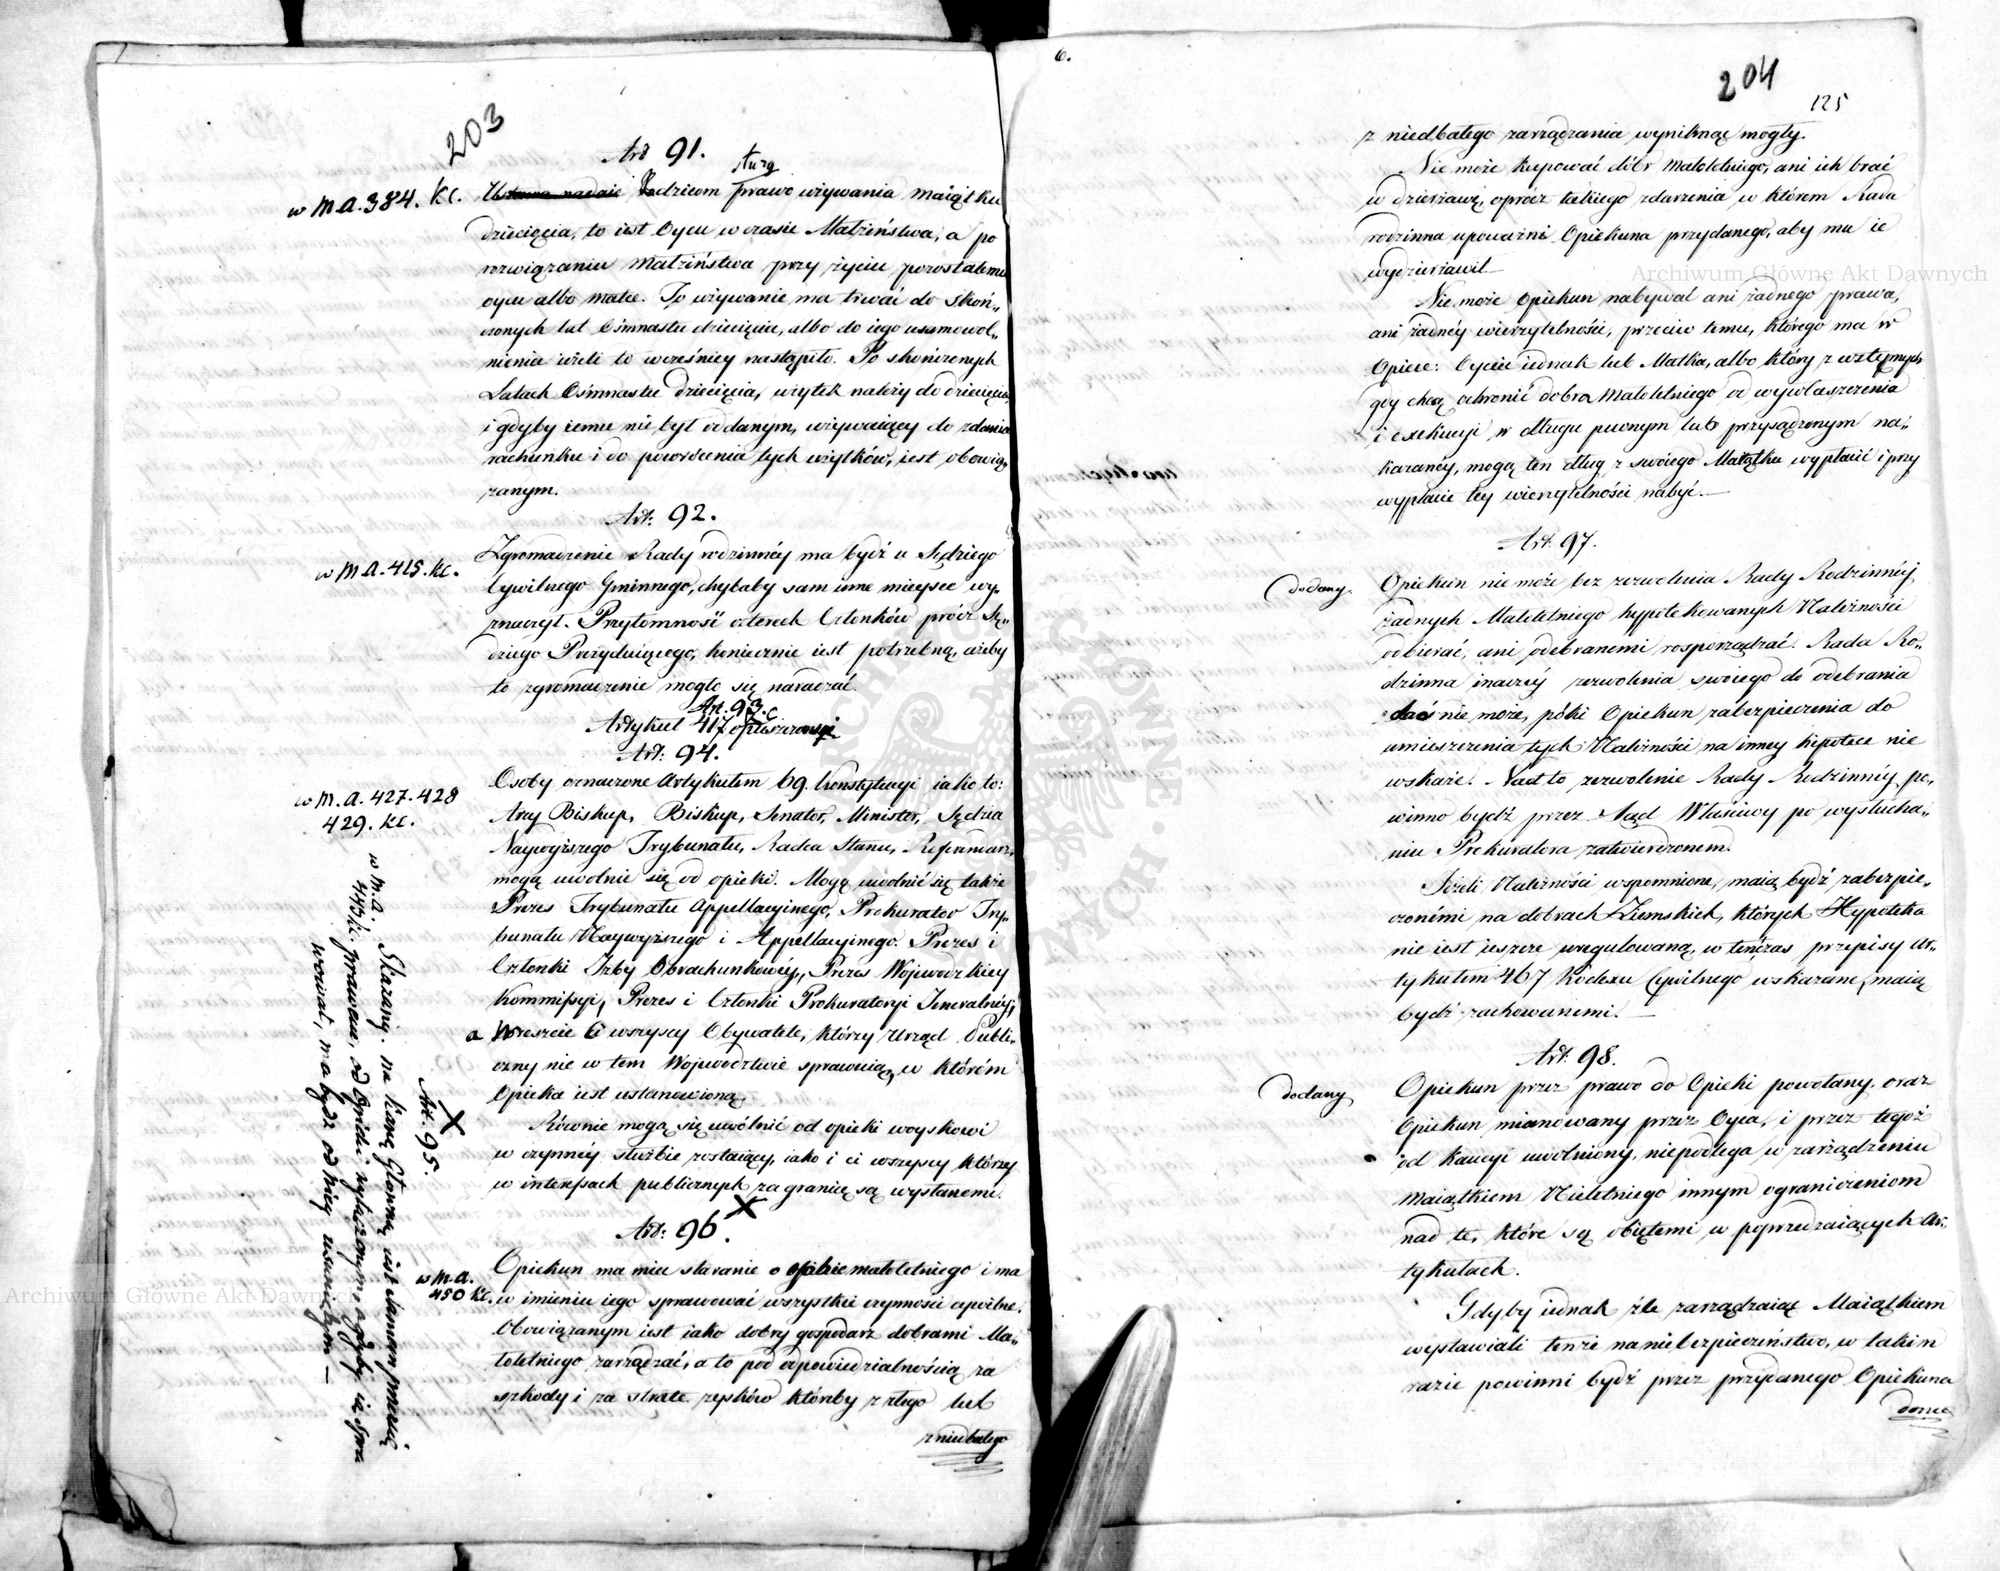 203
Art 91.
służy
w M. A. 384. KC.
Ustawa nadaie Rodzicom prawo używania maiątku
dziecięcia, to iest Oycu w czasie Małżeństwa, a po
rozwiązaniu Małżeństwa przy życiu pozostałemu
oycu albo matce. To używanie ma trwać do skoń„
czonych lat Ośmnastu dziecięcia, albo do iego usamowol„
nienia ieżeli to wcześniey nastąpiło. Po skończonych
Latach Ośmnastu dziecięcia, użytek należy do dziecięcia,
i gdyby iemu nie był oddanym, używaiący do zdania
rachunku i do powrócenia tych użytków, iest obowią„
zanym.
Art: 92.
w M A. 415. KC.
Zgromadzenie Rady rodzinnéy ma bydź u Sędziego
Cywilnego Gminnego, chybaby sam inne mieysce wy„
znaczył. Przytomność czterech Członków prócz Sę„
dziego Prezyduiącego, koniecznie iest potrzebną, ażeby
to zgromadzenie mogło się naradzać.
Art. 93.
Artykuł 417 opuszczony
Art: 94.
w M. A. 427. 428
429. KC.
Osoby oznaczone Artykułem 69. Konstytucyi iako to:
Arcy Biskup, Biskup, Senator, Minister, Sędzia
Naywyższego Trybunału, Radca Stanu, Referendarz,
mogą uwolnić się od opieki. Mogą uwolnić się także
Prezes Trybunału Appellacyinego, Prokurator Try„
bunału Naywyższego i Appellacyinego. Prezes i
Członki Izby Obrachunkowéy, Prezes Woiewodzkiey
Kommissyi, Prezes i Członki Prokuratoryi Jeneralnéy,
a Wreszcie Ci wszyscy Obywatele, którzy Urząd Publi„
czny nie w tem Woiewodztwie sprawuią, w którém
Opieka iest ustanowioną.
Równie mogą się uwólnić od opieki woyskowi
w czynnéy służbie zostaiący, iako i ci wszyscy którzy
w interssach publicznych za granicę są wysłanemi.
X
Art. 95.
w M. A.
443 KC.
Skazany na karę Główną iest samem prawie
prawem, od Opieki wyłączonym, a gdyby ią spra
wował, ma bydź od niey usuniętym —
Art: 96.
X
w M. A.
450 KC.
Opiekun ma mieć staranie o osobie małoletniego i ma
w imieniu iego sprawować wszystkie czynności cywilne.
Obowiązanym iest iako dobry gospodarz dobrami Ma„
łoletniego zarządzać, a to pod odpowiedzialnością za
szkody i za stratę zysków któréby z złego lub
z niedbałego
6.
204
125
z niedbałego zarządzania wyniknąć mogły.
Nie może kupować dóbr Małoletniego, ani ich brać
w dzierżawę, oprócz takiego zdarzenia w którem Rada
rodzinna upoważni Opiekuna przydanego, aby mu ie
wydzierżawił —
Nie może Opiekun nabywać ani żadnego prawa,
ani żadnéy wierzytelności, przeciw temu, którego ma w
Opiece: Oyciec iednak lub Matka, albo który z wstępnych
gdy chcą ochronić dobra Małoletniego od wywłaszczenia
i exekucyi w długu pewnym lub przysądzonym na„
kazanéy, mogą ten dług z swoiego Maiątku wypłacić i przy
wypłacie tey wierzytelności nabyć. —
Art: 97.
dodany.
Opiekun nie może bez zezwolenia Rady Rodzinnéy,
żadnych Małoletniego hypotekowanych Należności
odbierać, ani odebranemi rosporządzać. Rada Ro„
dzinna inaczéy zezwolenia swoiego do odebrania
dać nie może, póki Opiekun zabezpieczenia do
umieszczenia tych Należności na inney hipotece nie
wskaże. Nadto zezwolenie Rady Rodzinnéy po„
winno bydź przez Sąd Właściwy po wysłucha„
niu Prokuratora zatwierdzonem.
Jeżeli Należności wspomnione, maią bydź zabezpie„
czonémi na dobrach Ziemskich, których Hypoteka
nie iest ieszcze uregulowaną, w tenczas przepisy Ar„
tykułem 467 Kodexu Cywilnego wskazane, maią
bydź zachowanemi. —
Art: 98.
dodany
Opiekun przez prawo do Opieki powołany, oraz
Opiekun mianowany przez Oyca, i przez tegoż
od kaucyi uwolniony, niepodlega w zarządzeniu
Maiątkiem Nieletniego innym ograniczeniom
nad te, które są obiętemi w poprzedzaiących Ar„
tykułach.
Gdyby iednak źle zarządzaiąc Maiątkiem
wystawiali tenże na niebezpieczeństwo, w takim
razie powinni bydź przez przydanego Opiekuna
Archiwum Główne Akt Dawnych
Archiwum Główne Akt Dawnych